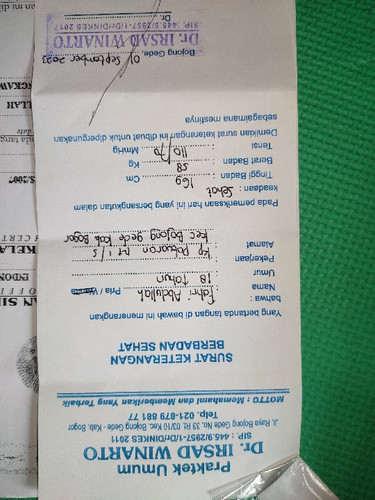 Praktek Umum
Dr. IRSAD WINARTO
SIP : 445.9/2957-1/Dr/DINKES 2011
Jl. Raya Bojong Gede No. 33 Rt. 03/10 Kec. Bojong Gede - Kab. Bogor
Telp. 021-879 881 77
MOTTO : Memahami dan Memberikan Yang Terbaik
SURAT KETERANGAN
BERBADAN SEHAT
Yang bertanda tangan di bawah ini menerangkan
bahwa :
Nama : Fahri Abdullah Pria / Wanita
Umur : 18 Tahun
Pekerjaan :
Alamat : Kp Pabuaran RT 1/5
Kec Bojong gede Kab Bogor
Pada pemeriksaan hari ini yang bersangkutan dalam
keadaan : Sehat
Tinggi Badan : 169 Cm
Berat Badan : 58 Kg
Tensi : 110/70 MmHg
Demikan surat keterangan ini dibuat untuk dipergunakan
sebagaimana mestinya
Bojong Gede, 01 September 2023
Dr. IRSAD WINARTO
SIP. 445.9/2957-1/Dr/DINKES 2017
Dr.